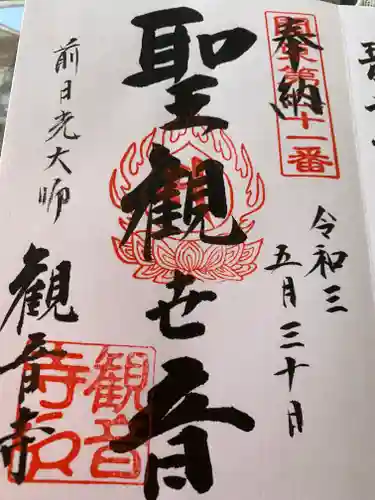 奉納
十一番
令和三
五月三十日
聖観世音
前日光大師
観音寺
観音
寺印